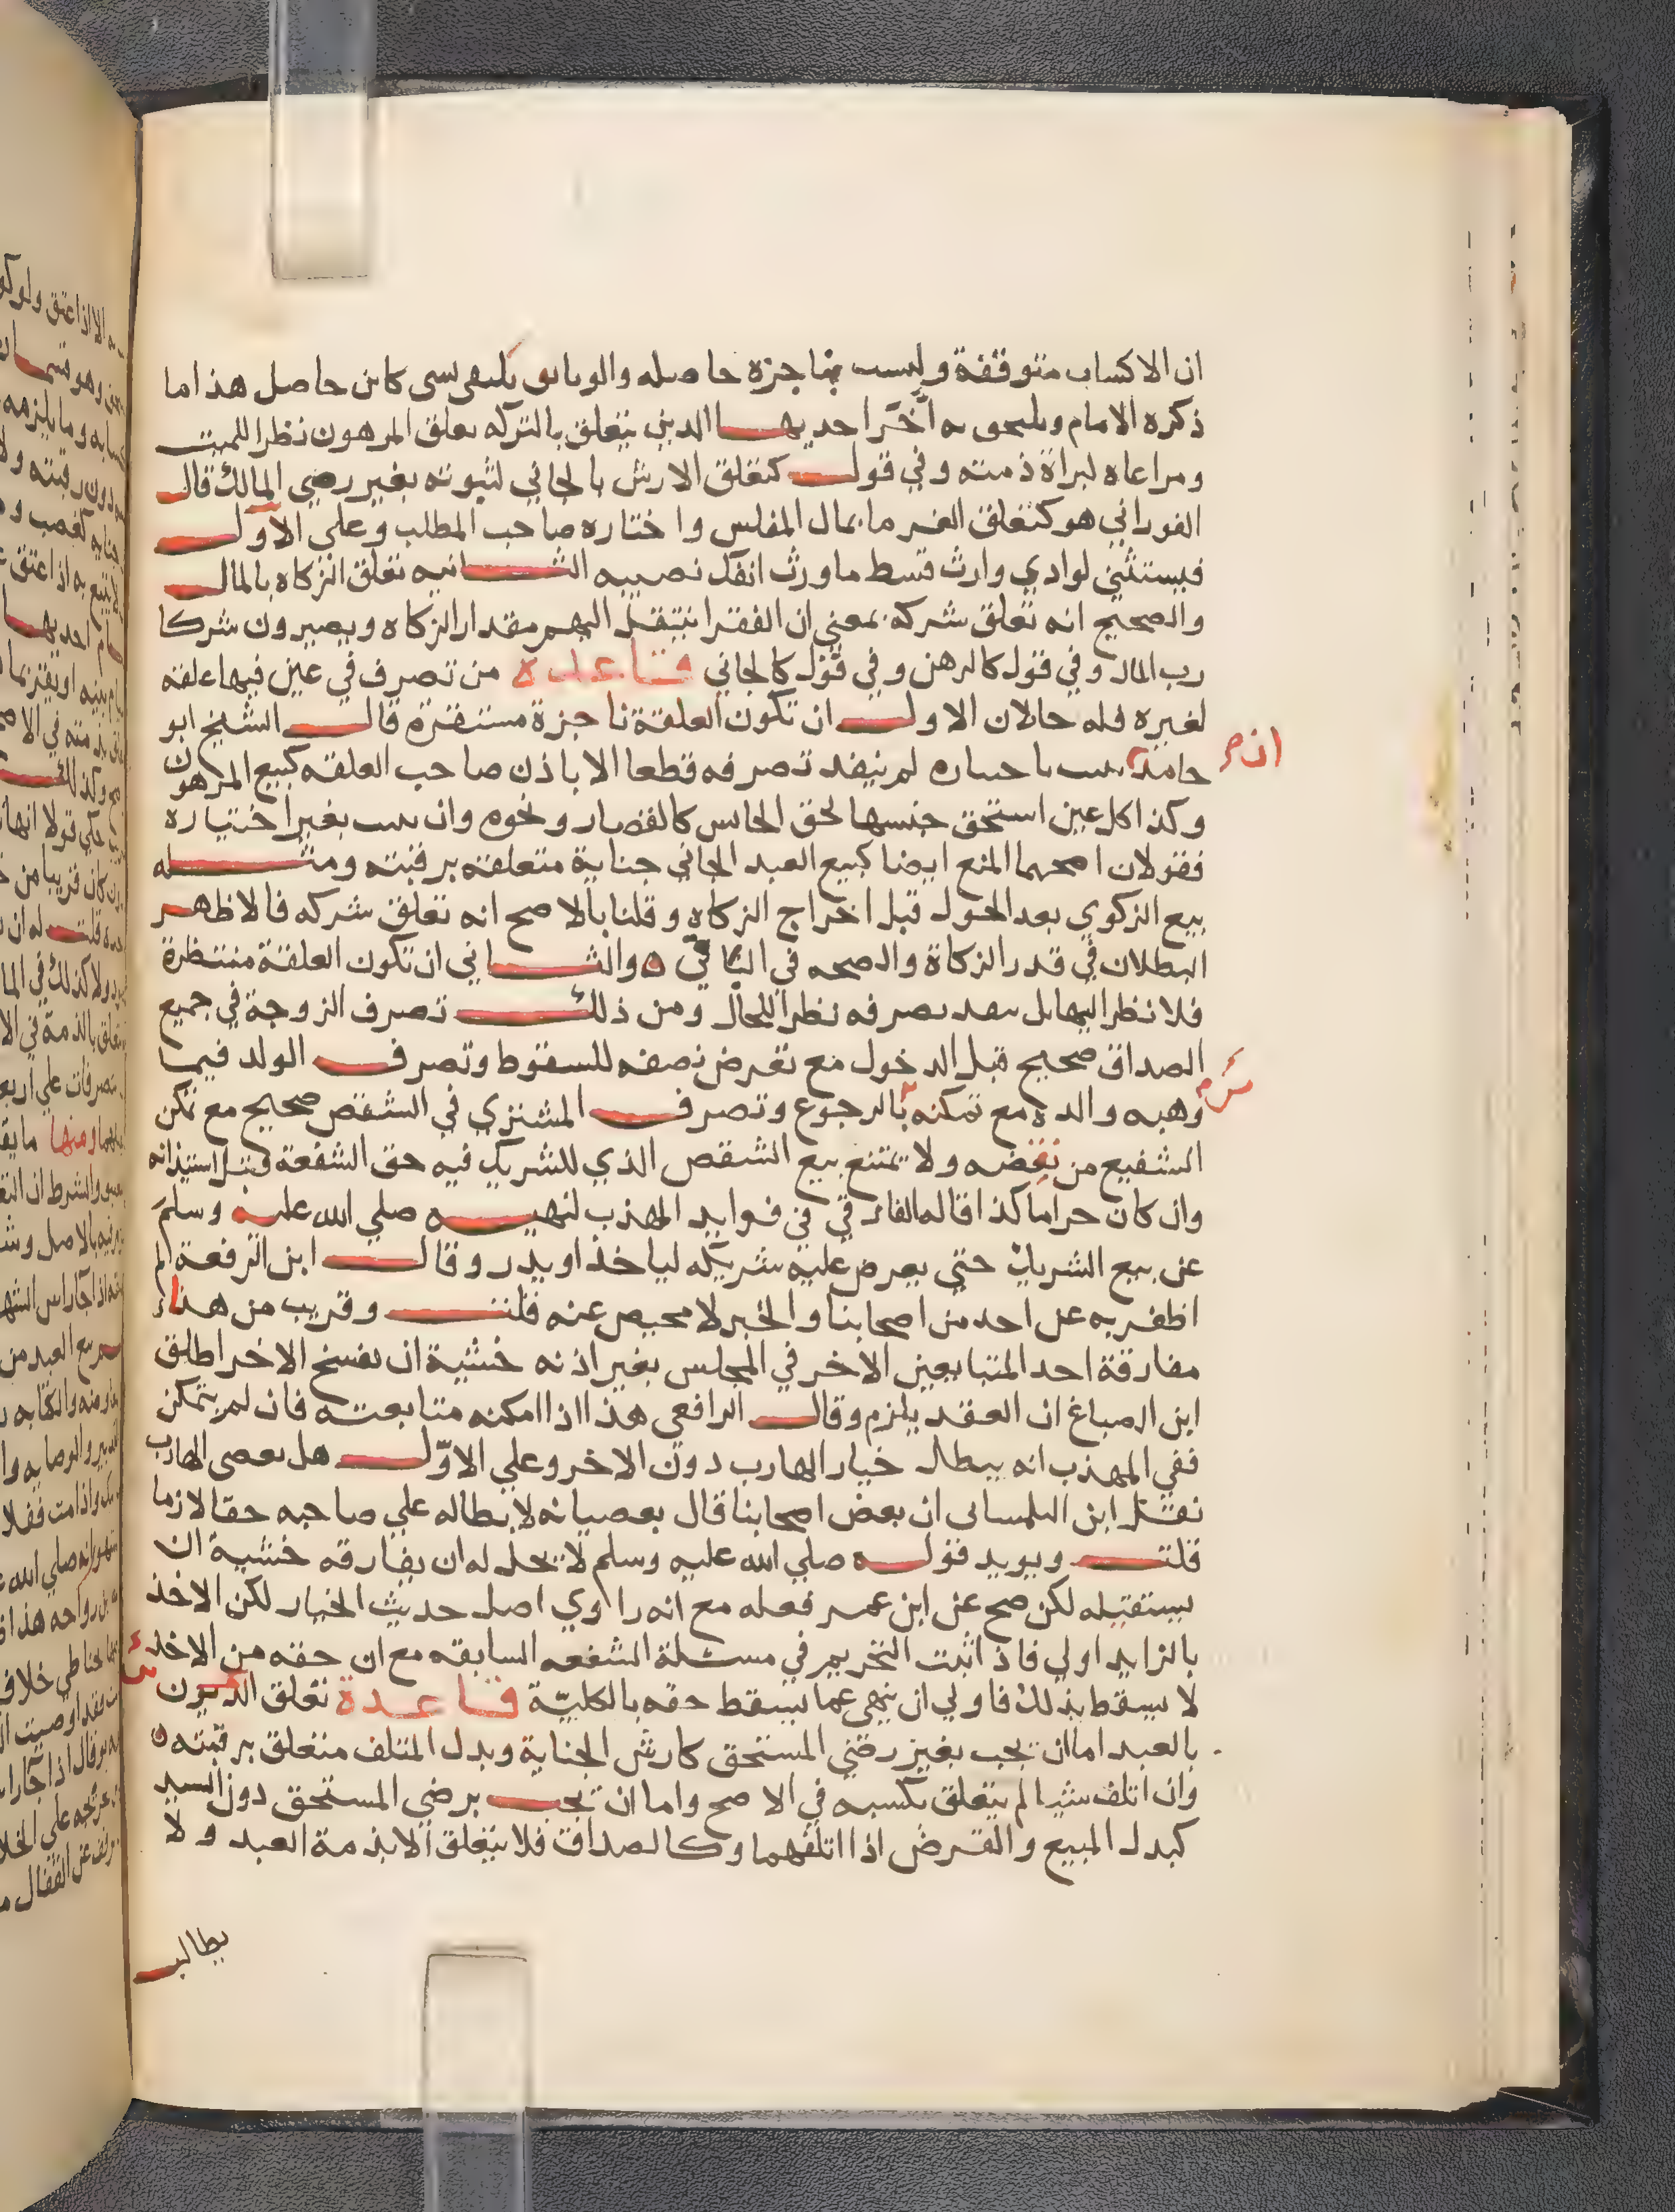 ان الاكساب متوقفة وليست بناجزة حاصله والوثايق تليق بشي كاين حاصل هذا ما
ذكره الامام ويلتحق به آخرا احديهـــا الدين يتعلق بالتركه تعلق المرهون نظرا للميت
ومراعاه لبراة ذمته وفي قولـــ كتعلق الارش بالجاني لثبوته بغير رضي المالك قالـ
الفوراني هو كتعلق الغرما بمال المفلس واختاره صاحب المطلب وعلي الاولـــ
فيستثني لو ادي وارث قسط ما ورث انفك نصيبه الثـــانيه تعلق الزكاه بالمالـــ
والصحيح انه تعلق شركه بمعني ان الفقرا ينتقل اليهم مقدار الزكاه ويصيرون شركا
رب المال وفي قول كالرهن وفي قول كالجاني قــاعده من تصرف في عين فيها علقه
لغيره فله حالان الاولـــ ان تكون العلقة ناجزة مستقرة قالـــ الشيخ ابو
حامد ان ثبت باختياره لم ينفد تصرفه قطعا الا باذن صاحب العلقه كبيع المرهون
وكذا كل عين استحق حبسها لحق الحابس كالقصار ونحوه وان ثبت بغير اختياره
فقولان اصحهما المنع ايضا كبيع العبد الجاني جناية متعلقه برقبته ومثـــله
بيع الزكوي بعد الحول قبل اخراج الزكاه وقلنا بالاصح انه تعلق شركه فالاظهر
البطلان في قدر الزكاة والصحه في الباقي ٥ والثـــاني ان تكون العلقة منتظرة
فلا نظر اليها بل ينفد تصرفه نظرا للحال ومن ذلكـــ تصرف الزوجة في جميع
الصداق صحيح قبل الدخول مع تعرض نصفه للسقوط وتصرفـــ الولد فيما
وهبه والده مع تمكنه بالرجوع وتصرفـــ المشتري في الشقص صحيح مع تمكن
الشفيع من نقضه ولا يمتنع بيع الشقص الذي للشريك فيه حق الشفعة قبل استيذانه
وان كان حراما كذا قاله الفارقي في فوايد المهذب لنهيـــه صلي الله عليه وسلم
عن بيع الشريك حتي يعرض علية شريكه لياخذ او يدر وقالـــ ابن الرفعة لم
اظفر به عن احد من اصحابنا والخبر لا محيص عنه قلتـــ وقريب من هذا
مفارقة احد المتبايعين الاخر في المجلس بغير اذنه خشية ان يفسخ الاخر اطلق
ابن الصباغ ان العقد يلزم وقالـــ الرافعي هذا اذا امكنه متابعته فان لم يتمكن
ففي المهذب انه يبطل خيار الهارب دون الاخر وعلي الاوّلـــ هل يعصي الهارب
نقل ابن التلمساني ان بعض اصحابنا قال بعصيانه لابطاله علي صاحبه حقا لازما
قلتـــ ويويد قولـــه صلي الله عليه وسلم لا يحل له ان يفارقه خشية ان
يستقيله لكن صح عن ابن عمر فعله مع انه راوي اصل حديث الخيار لكن الاخذ
بالزايد اولي فاذ اثبت التحريم في مسئلة الشفعه السابقه مع ان حقه من الاخذ
لا يسقط بذلك فاولي ان ينهي عما يسقط حقه بالكليّة قــاعــدة تعلق الديون
بالعبد اما ان تجب بغير رضي المستحق كارش الجناية وبدل المتلف متعلق برقبته ٥
وان اتلف شيا لم يتعلق بكسبه في الاصح واما ان تجبـــ برضي المستحق دون السيد
كبدل المبيع والقرض اذا اتلفهما وكالصداق فلا يتعلق الا بذمة العبد ولا
يطالبـ